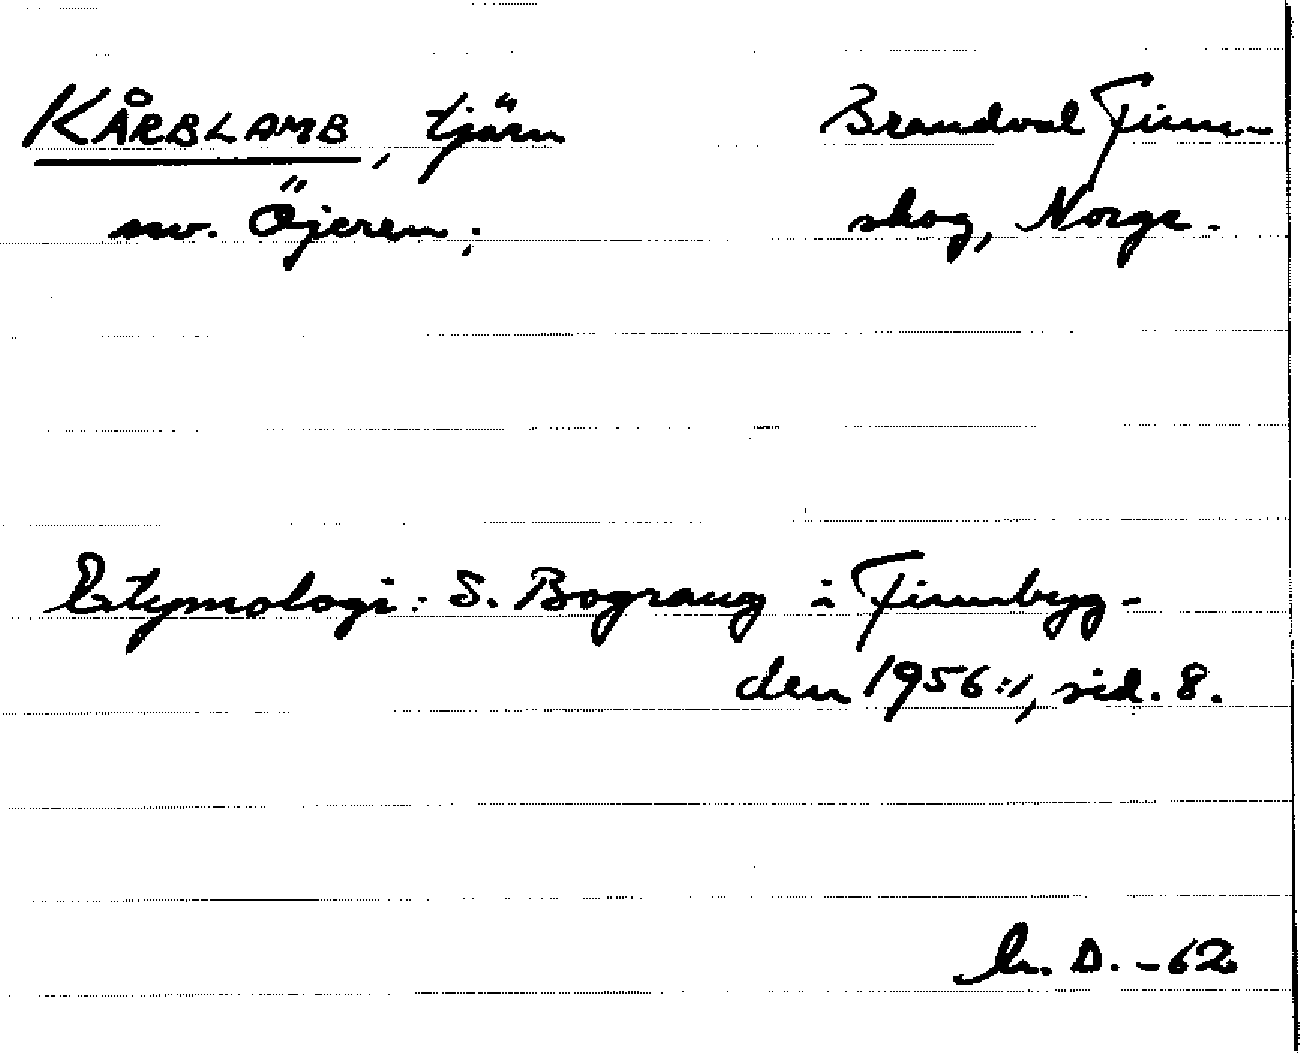 KÅRBLAMB, tjärn
nv. Öjeren.
Brandval Finn-
skog, Norge.
Etymologi: S. Bograng i Finnbyg-
den 1956:1, sid. 8.
D. -62